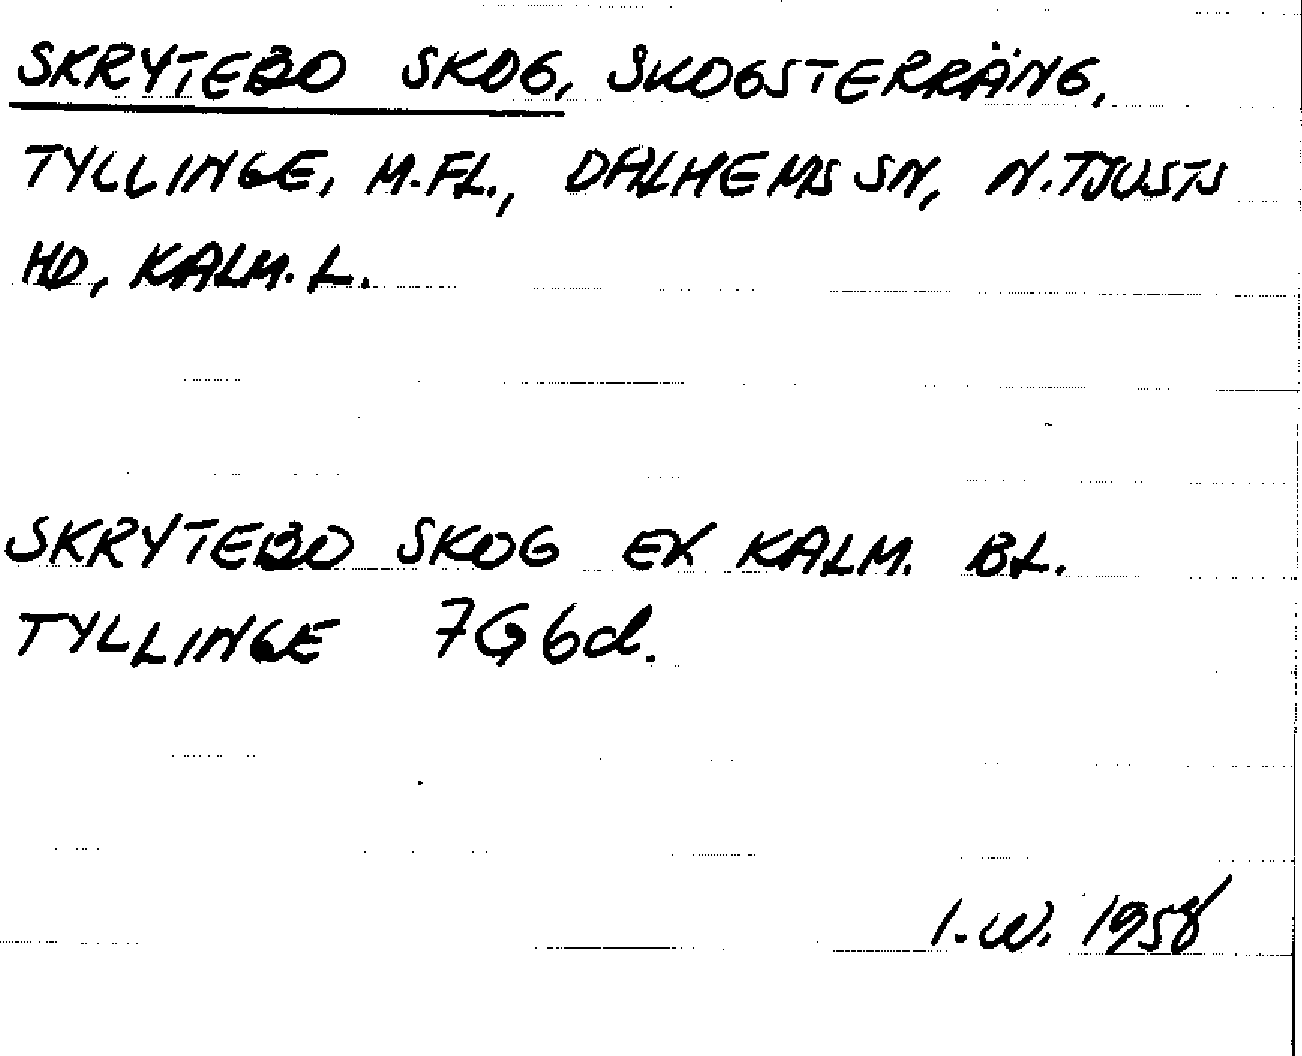 SKRYTEBO SKOG, SKOGSTERRÄNG,
TYLLINGE, M.FL., DALHEMS SN, N.TJUSTS
HD, KALM. L.
SKRYTEBO SKOG EK KALM. BL.
TYLLINGE 7G6d.
I.W. 1958